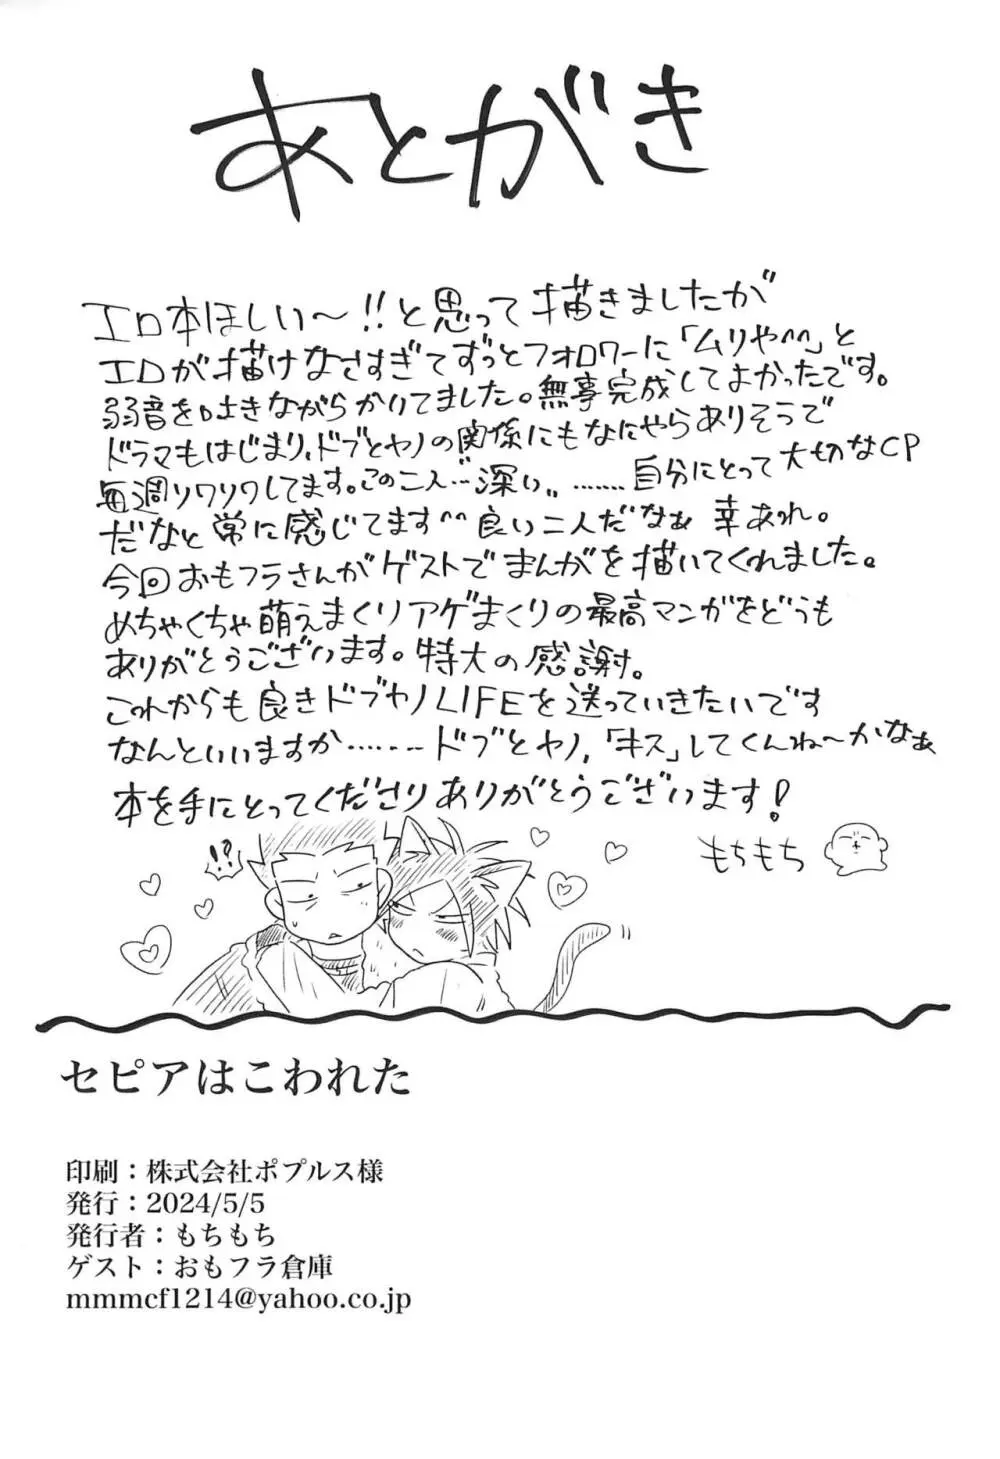 あとがき
エロ本ほしい〜!!と思って描きましたが
エロが描けなさすぎてずっとフォロワーに「ムリや^^」と
弱音を吐きながらかいてました。無事完成してよかったです。
ドラマもはじまり、ドブとヤノの関係にもなにやらありそうで
毎週ソワソワしてます。この二人…深い.. ……自分にとって大切なCP
だなと常に感じてます^^良い二人だなぁ 幸あれ。
今回おもフラさんがゲストでまんがを描いてくれました。
めちゃくちゃ萌えまくりアゲまくりの最高マンガをどうも
ありがとうございます。特大の感謝。
これからも良きドブヤノLIFEを送っていきたいです
なんといいますか……... ドブとヤノ,「キス」してくんね〜かなぁ
本を手にとってくださりありがとうございます!
もちもち
!?
セピアはこわれた
印刷：株式会社ポプルス様
発行：2024/5/5
発行者：もちもち
ゲスト：おもフラ倉庫
mmmcf1214@yahoo.co.jp